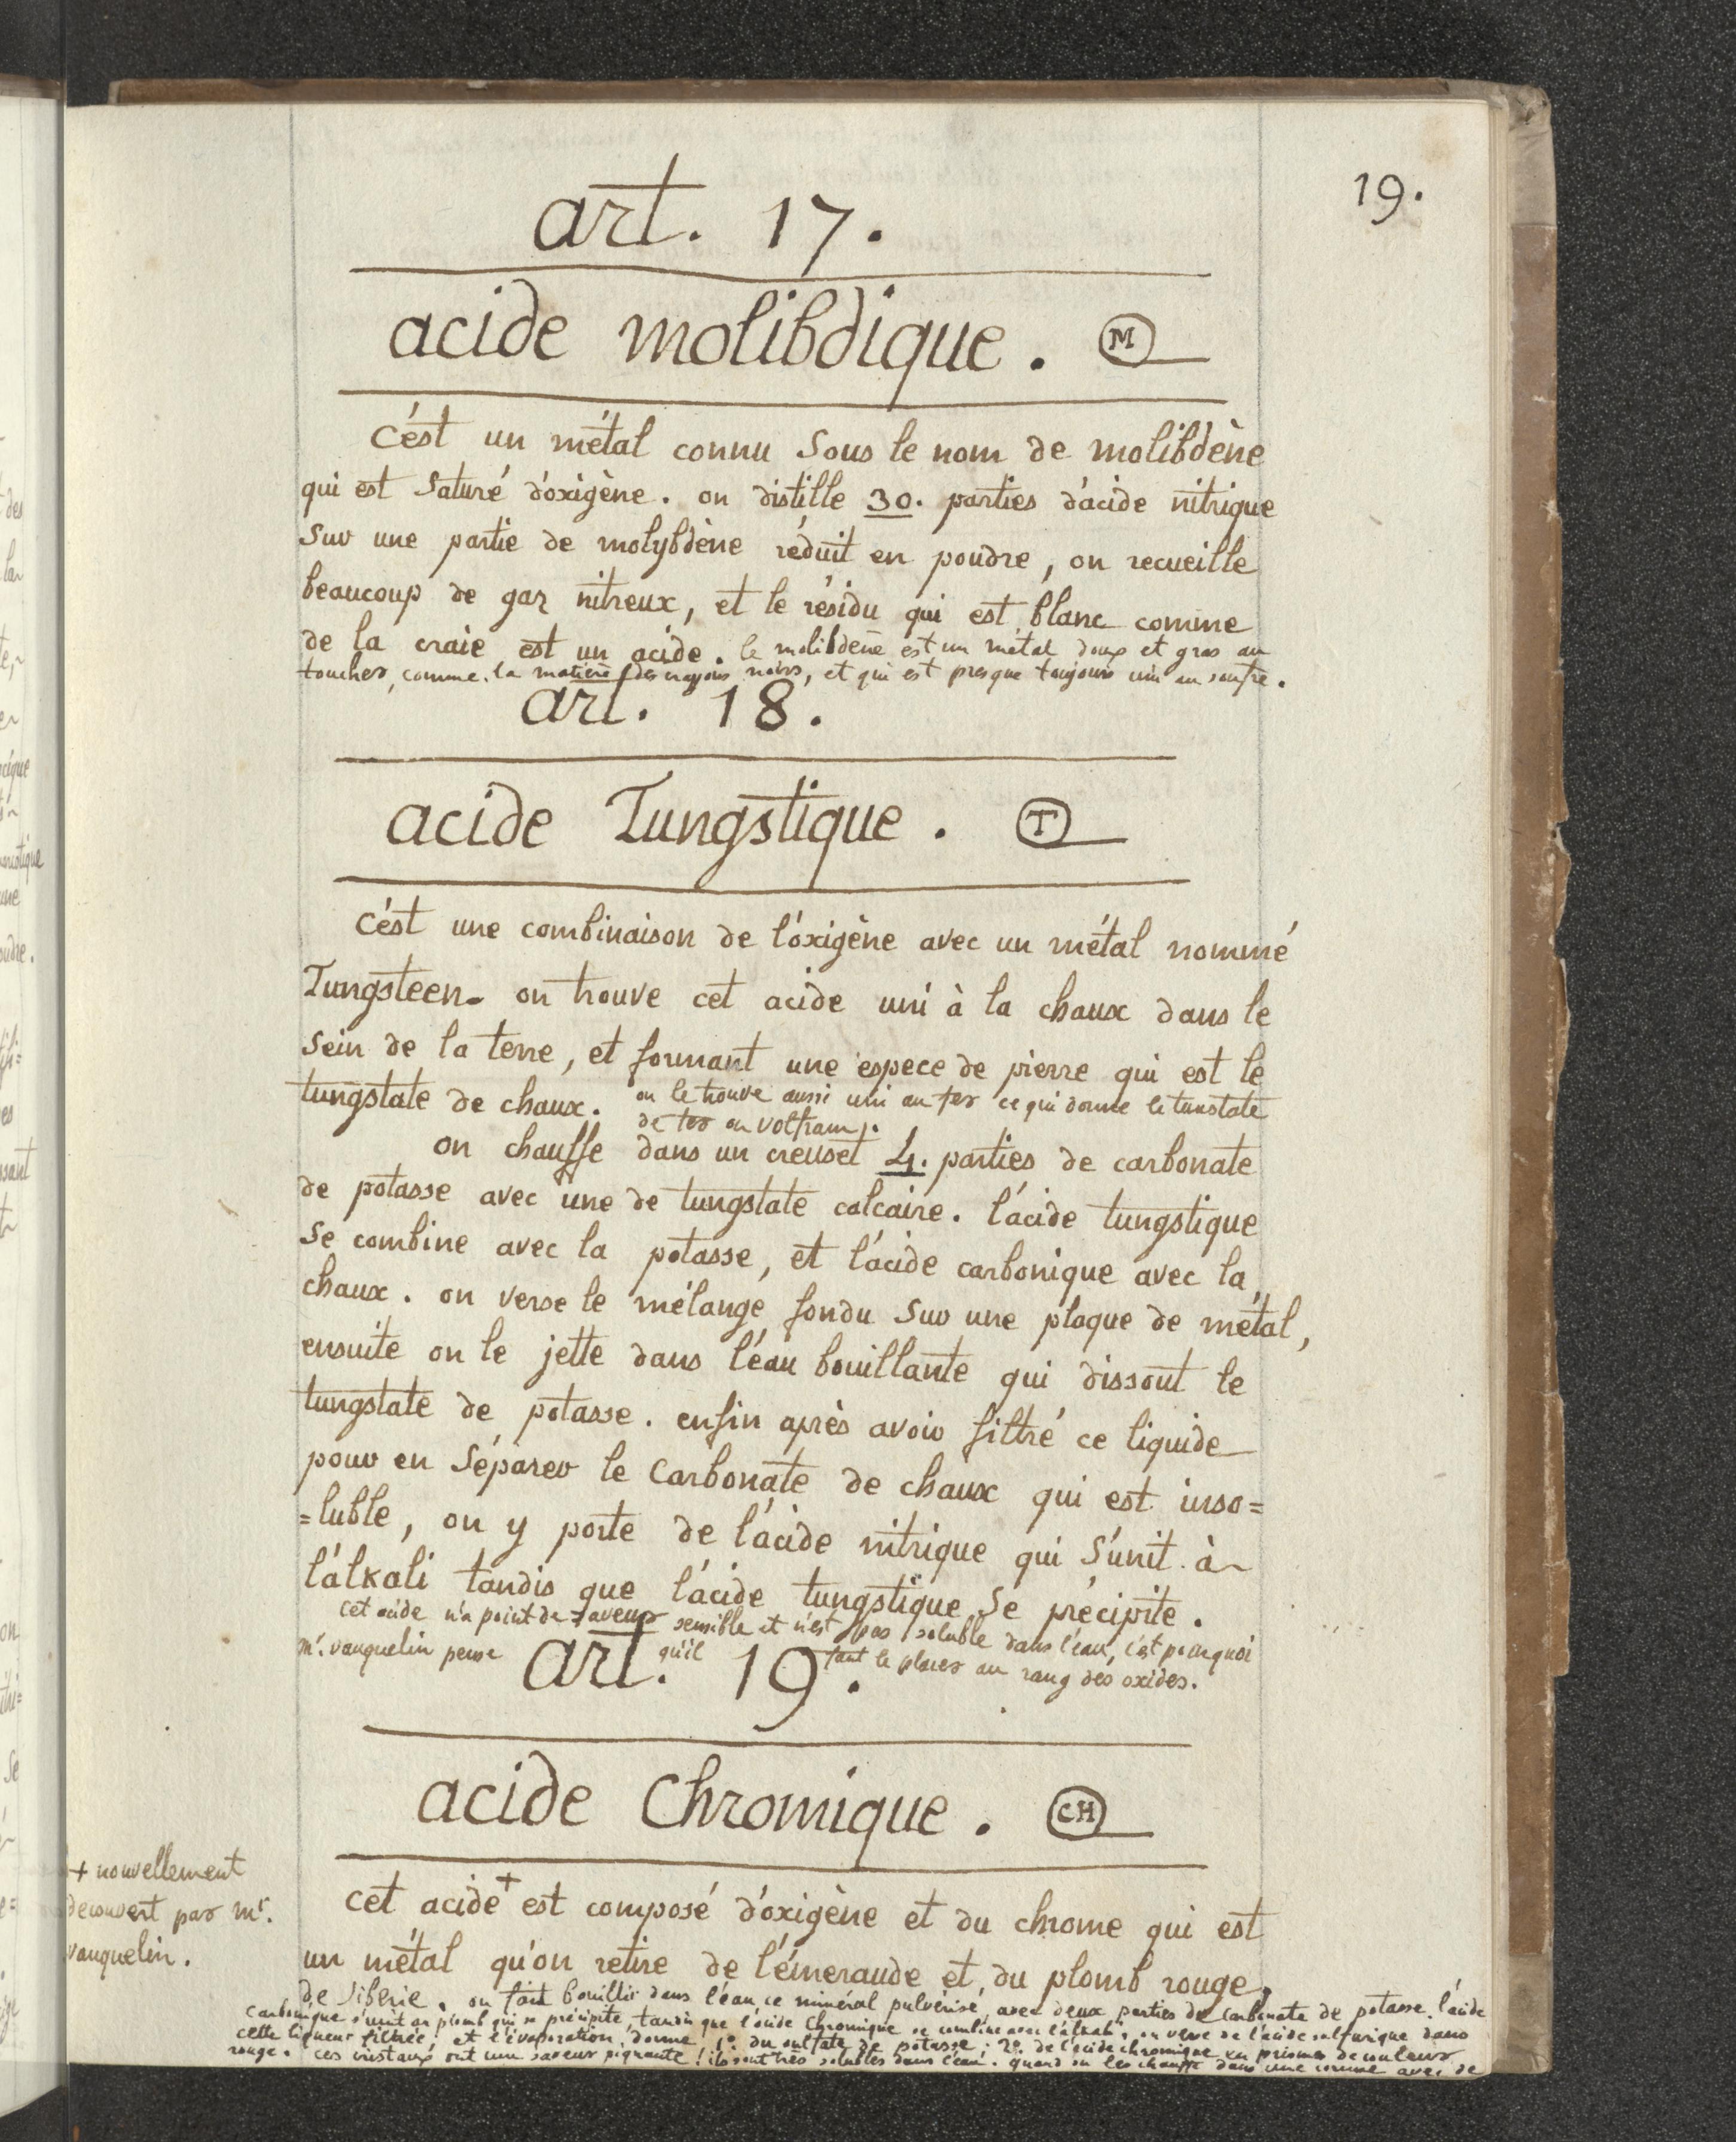 19.
art. 17.
acide molibdique. M
c'ést un métal connu sous le nom de molibdène
qui est saturé d'oxigène. on distille 30. parties d'acide nitrique
sur une partie de molybdène réduit en poudre, on recueille
beaucoup de gaz nitreux, et le résidu qui est blanc comme
de la craie est un acide. le molibdène est un métal doux et gras au
toucher, comme la matière des crayons noirs, et qui est presque toujours uni au soufre.
art. 18.
acide Tungstique. T
c'ést une combinaison de l'óxigène avec un métal nommé
Tungsteen. on trouve cet acide uni à la chaux dans le
sein de la terre, et formant une espece de pierre qui est le
tungstate de chaux. on le trouve aussi uni au fer ce qui donne le tunstate
de fer ou volfram.
on chauffe dans un creuset 4. parties de carbonate
de potasse avec une de tungstate calcaire. l'ácide tungstique
se combine avec la potasse, et l'ácide carbonique avec la
chaux. on verse le mélange fondu sur une plaque de métal,
ensuite on le jette dans l'éau bouillante qui dissout le
tungstate de potasse. enfin après avoir filtré ce liquide
pour en séparer le carbonate de chaux qui est inso=
=luble, on y porte de l'ácide nitrique qui s'únit à
l'álkali tandis que l'ácide tungstique se précipite.
cet acide n'a point de saveur sensible et n'est pas soluble dans l'eau, c'est pourquoi
mr. vauquelin pense qu'il faut le placer au rang des oxides.
art. 19.
acide Chromique. CH
+ nouvellement
decouvert par mr.
vauquelin.
cet acide + est composé d'óxigène et du chrome qui est
un métal qu'on retire de l'émeraude et du plomb rouge
de siberie. on fait bouillir dans l'éau ce minéral pulvérisé, avec deux parties de carbonate de potasse. l'ácide
carbonique s'unit au plomb qui se précipite, tandis que l'ácide chromique se combine avec l'álkali. on verse de l'ácide sulfurique dans
cette liqueur filtrée; et l'évaporation donne 1º. du sulfate de potasse; 2º. de l'ácide chromique en prismes de couleur
rouge. ces cristaux ont une saveur piquante! ils sont très solubles dans l'éau. quand on les chauffe dans une cornue avec de